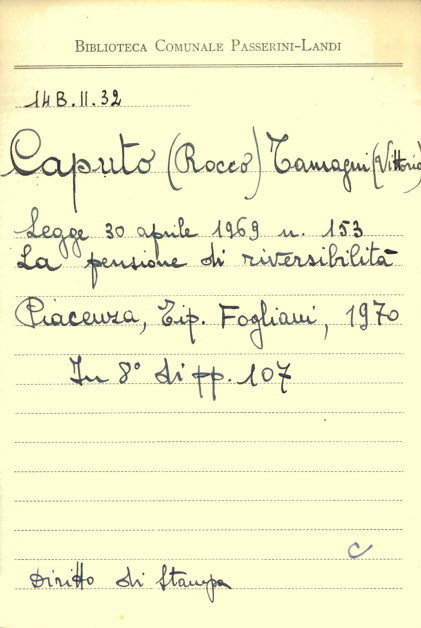 BIBLIOTECA COMUNALE PASSERINI-LANDI
14 B. II. 32
Caputo (Rocco) Tamagni (Vittorio)
Legge 30 aprile 1969 n. 153
La pensione di riversibilità
Piacenza, Tip. Fogliani, 1970
In 8° di pp. 107
C
Diritto di Stampa